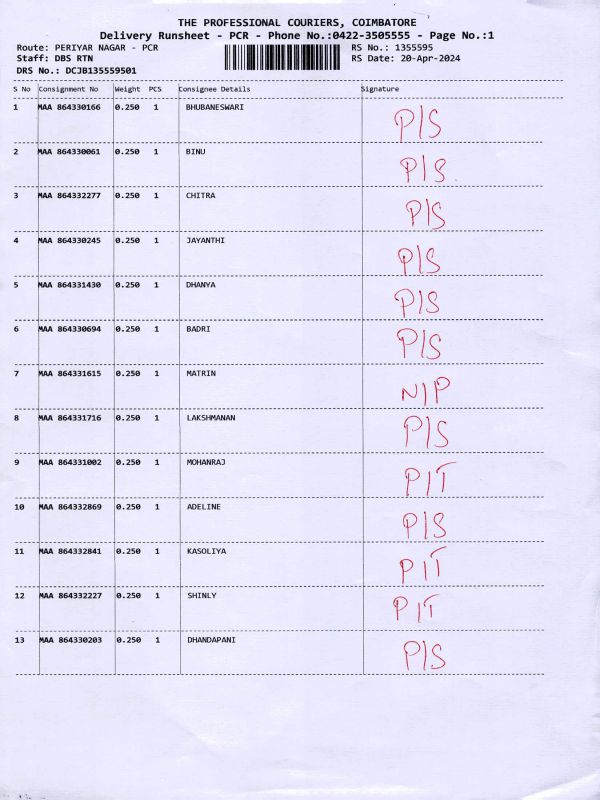 THE PROFESSIONAL COURIERS, COIMBATORE
Delivery Runsheet - PCR - Phone No.:0422-3505555 - Page No.:1
Route: PERIYAR NAGAR - PCR RS No.: 1355595
Staff: DBS RTN RS Date: 20-Apr-2024
DRS No.: DCJB135559501
S No Consignment No Weight PCS Consignee Details Signature
1 MAA 864330166 0.250 1 BHUBANESWARI P/S
2 MAA 864330061 0.250 1 BINU P/S
3 MAA 864332277 0.250 1 CHITRA P/S
4 MAA 864330245 0.250 1 JAYANTHI P/S
5 MAA 864331430 0.250 1 DHANYA P/S
6 MAA 864330694 0.250 1 BADRI P/S
7 MAA 864331615 0.250 1 MATRIN N/P
8 MAA 864331716 0.250 1 LAKSHMANAN P/S
9 MAA 864331002 0.250 1 MOHANRAJ P/T
10 MAA 864332869 0.250 1 ADELINE P/S
11 MAA 864332841 0.250 1 KASOLIYA P/T
12 MAA 864332227 0.250 1 SHINLY P/T
13 MAA 864330203 0.250 1 DHANDAPANI P/S